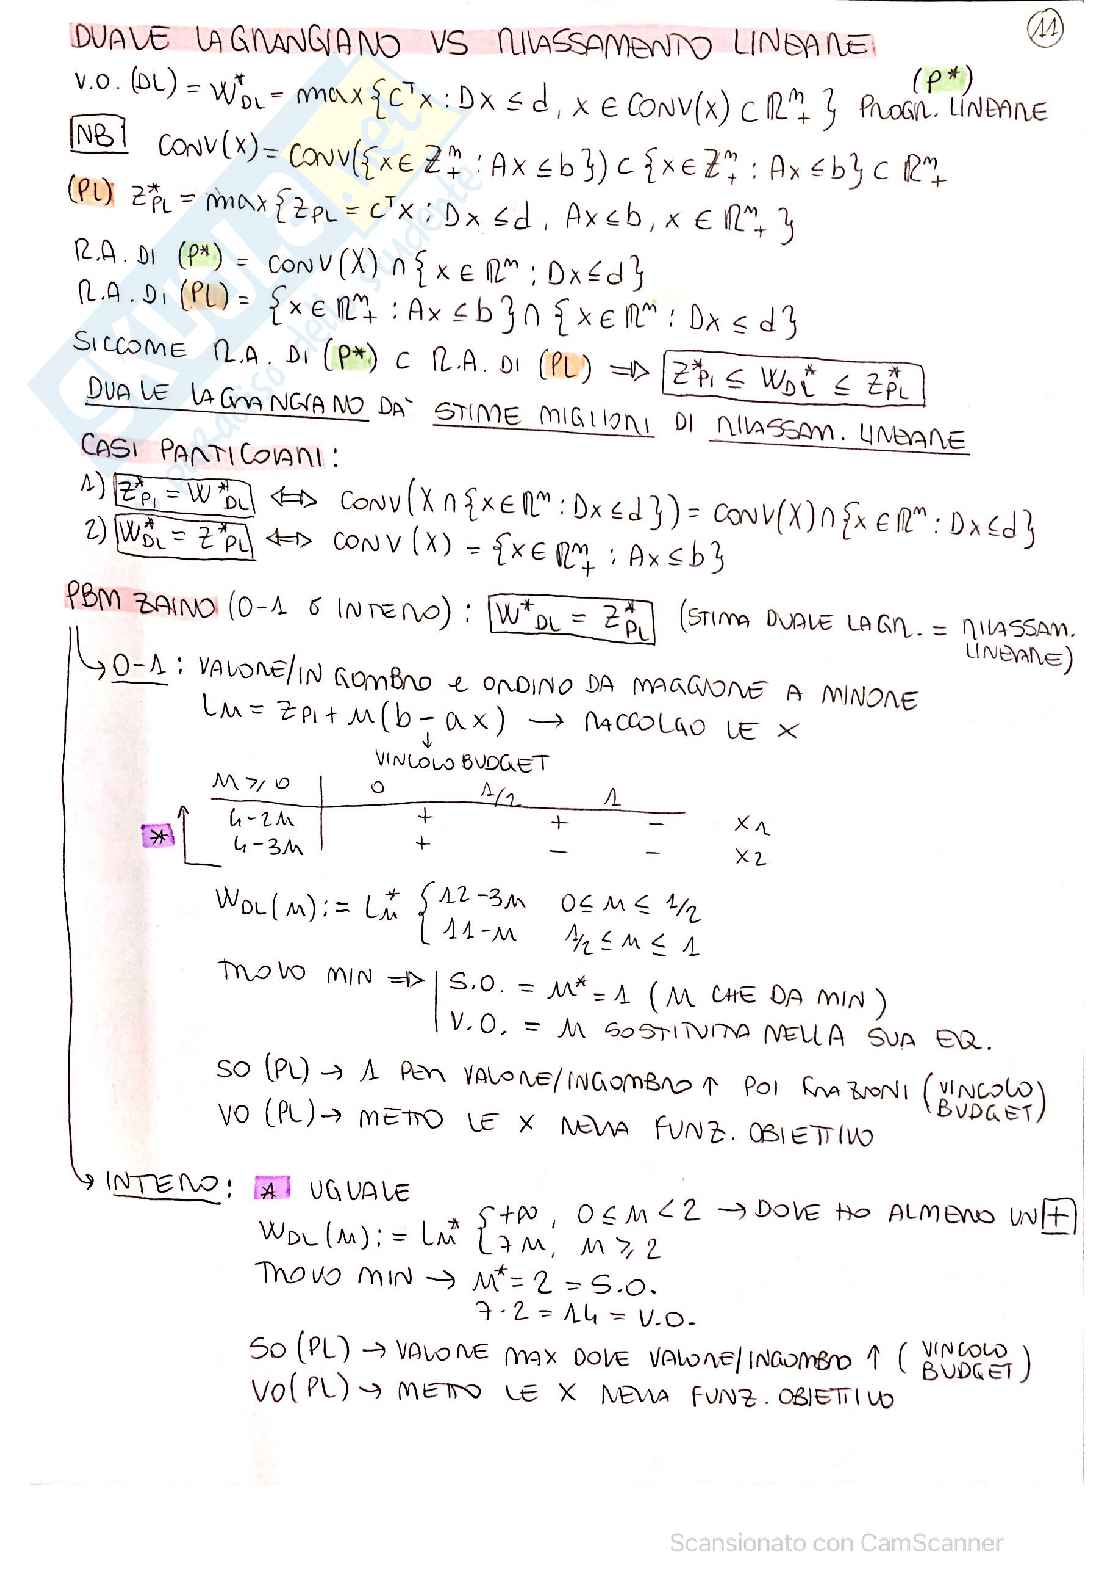 11
DUALE LAGRANGIANO VS RILASSAMENTO LINEARE
V.O. (DL) = W*DL = max{cᵀx : Dx ≤ d, x ∈ CONV(x) ⊂ ℝⁿ₊} (P*) PROGR. LINEARE
NB CONV(X) = CONV({x ∈ ℤⁿ₊ : Ax ≤ b}) ⊂ {x ∈ ℤⁿ₊ : Ax ≤ b} ⊂ ℝⁿ₊
(PL) Z*PL = max{ZPL = cᵀx : Dx ≤ d, Ax ≤ b, x ∈ ℝⁿ₊}
R.A. DI (P*) = CONV(X) ∩ {x ∈ ℝⁿ : Dx ≤ d}
R.A. DI (PL) = {x ∈ ℝⁿ₊ : Ax ≤ b} ∩ {x ∈ ℝⁿ : Dx ≤ d}
SICCOME R.A. DI (P*) ⊂ R.A. DI (PL) ⇒ Z*PI ≤ WDL* ≤ Z*PL
DUALE LAGRANGIANO DÀ STIME MIGLIORI DI RILASSAM. LINEARE
CASI PARTICOLARI:
1) Z*PI = W*DL ⇔ CONV(X ∩ {x ∈ ℝⁿ : Dx ≤ d}) = CONV(X) ∩ {x ∈ ℝⁿ : Dx ≤ d}
2) W*DL = Z*PL ⇔ CONV(X) = {x ∈ ℝⁿ₊ : Ax ≤ b}
PBM ZAINO (0-1 O INTERO) : W*DL = Z*PL (STIMA DUALE LAGR. = RILASSAM. LINEARE)
↳ 0-1 : VALORE/INGOMBRO e ORDINO DA MAGGIORE A MINORE
LM = ZPI + M(b - ax) → RACCOLGO LE X
↓
VINCOLO BUDGET
M ≥ 0 | 0 1/2 1
4-2M | + + - X1
* 4-3M | + - - X2
WDL(M) := LM* { 12-3M 0 ≤ M ≤ 1/2
11-M 1/2 ≤ M ≤ 1
TROVO MIN ⇒ | S.O. = M* = 1 (M CHE DA MIN)
V.O. = M SOSTITUITA NELLA SUA EQ.
SO (PL) → 1 PER VALORE/INGOMBRO ↑ POI FRAZIONI (VINCOLO BUDGET)
VO (PL) → METTO LE X NELLA FUNZ. OBIETTIVO
↳ INTERO : * UGUALE
WDL(M) := LM* { +∞, 0 ≤ M < 2 → DOVE HO ALMENO UN +
7M, M ≥ 2
TROVO MIN → M* = 2 = S.O.
7·2 = 14 = V.O.
SO (PL) → VALORE MAX DOVE VALORE/INGOMBRO ↑ (VINCOLO BUDGET)
VO (PL) → METTO LE X NELLA FUNZ. OBIETTIVO
Scansionato con CamScanner